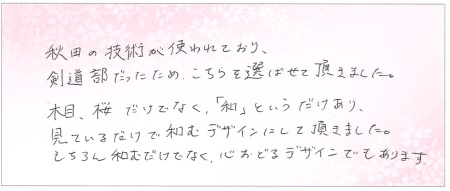 秋田の技術が使われており、
剣道部だったため、こちらを選ばせて頂きました。
木目、桜 だけでなく、「和」というだけあり、
見ているだけで和むデザインにして頂きました。
もちろん和むだけでなく、心おどるデザインでもあります。